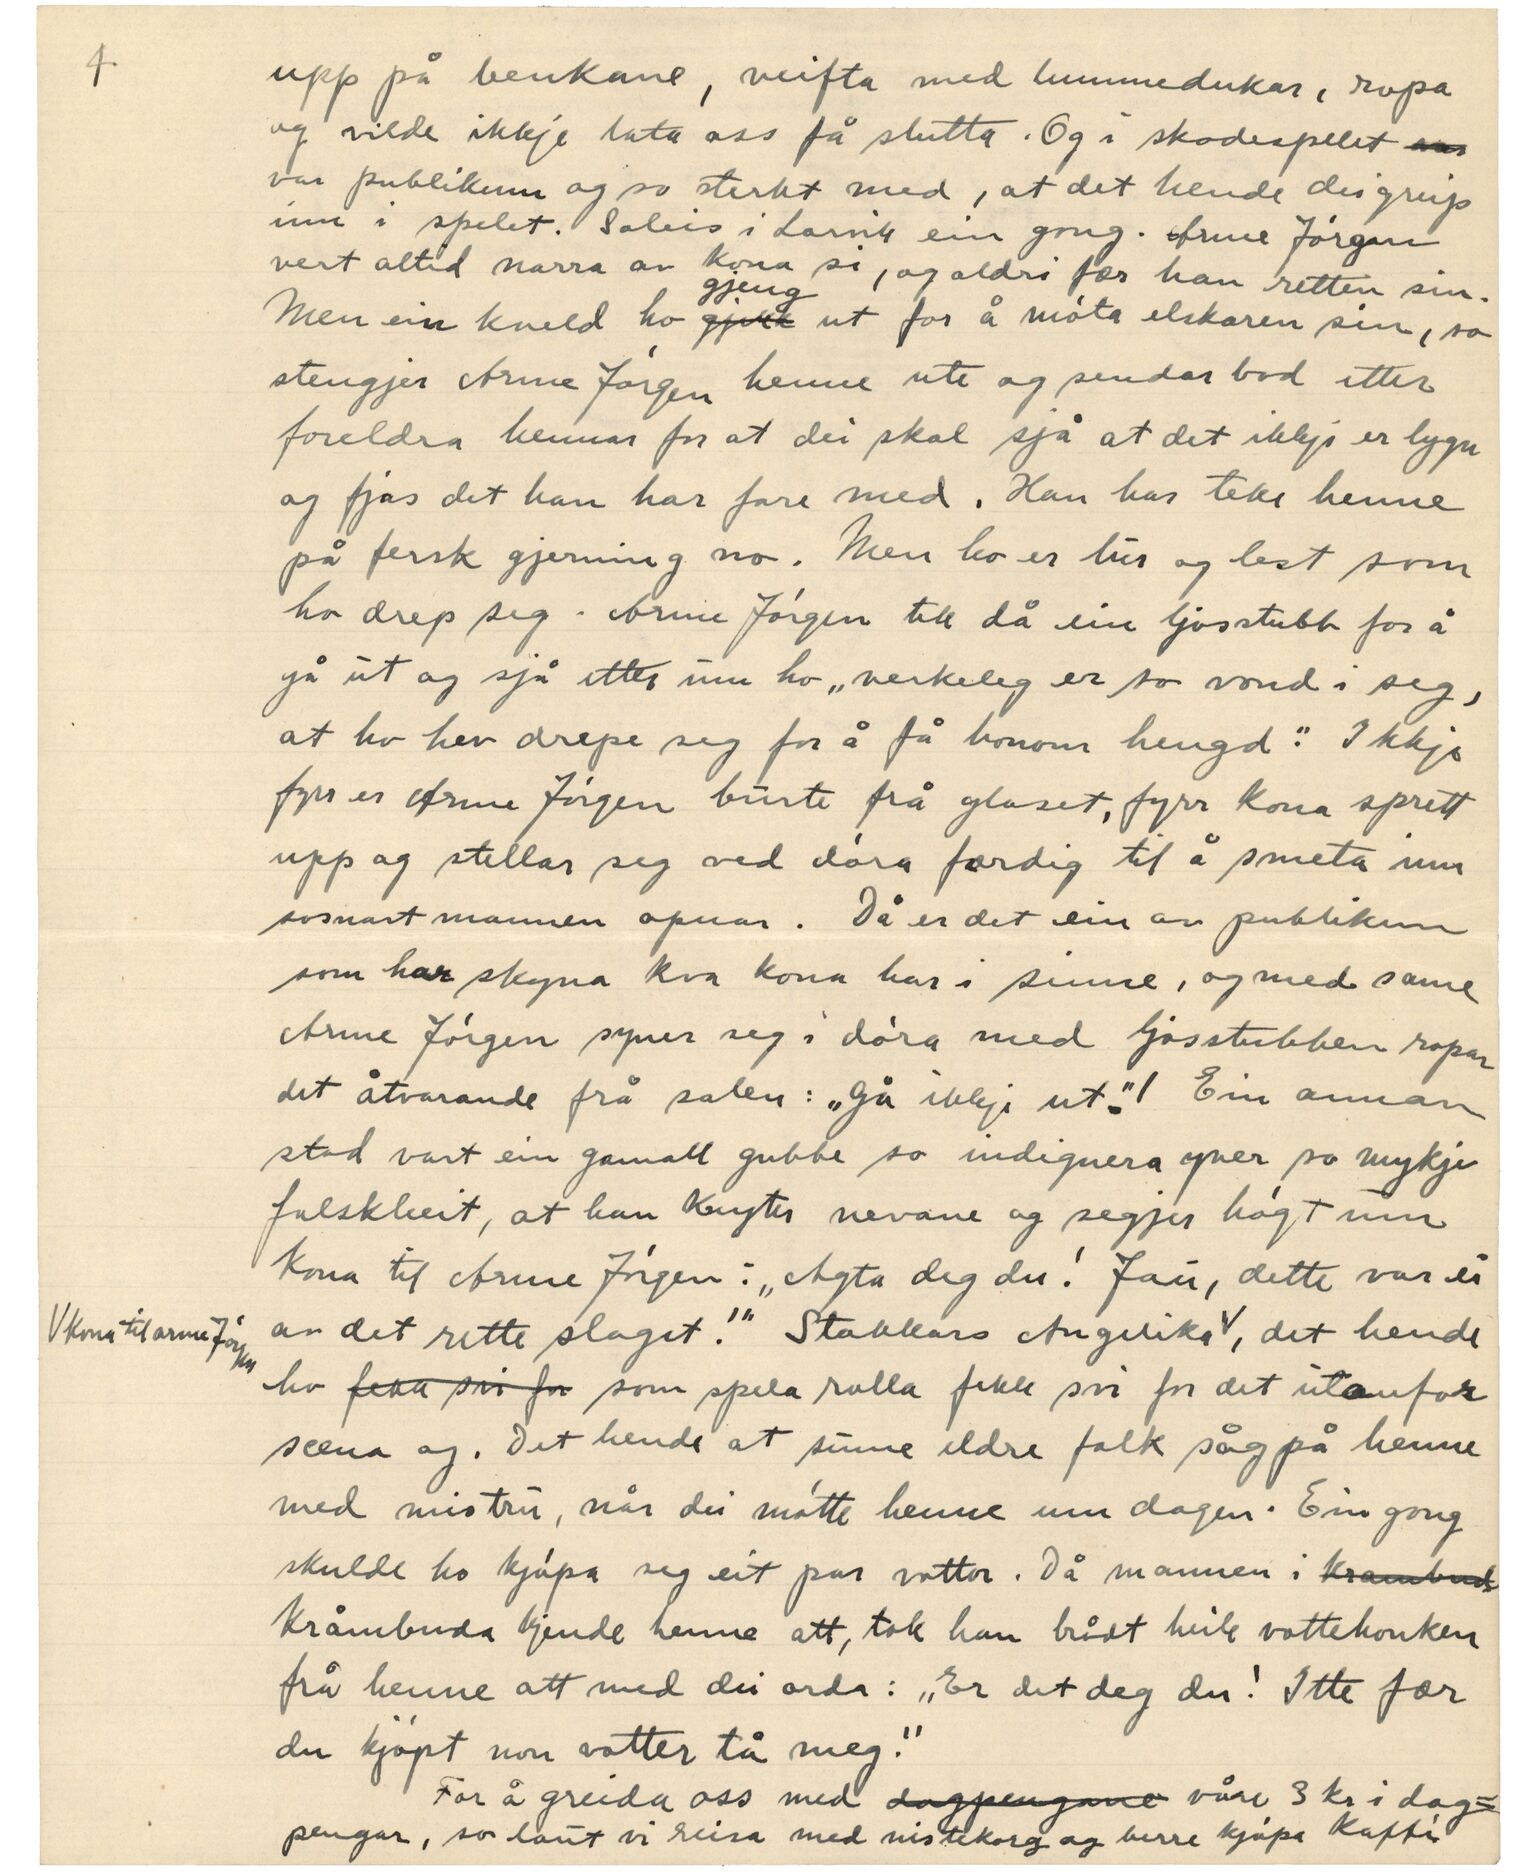 4
upp på benkane, veifta med lummedukar, ropa
og vilde ikkje lata oss få slutta. Og i skodespelet ~~var~~
var publikum og so sterkt med, at det hende dei greip
inn i spelet. Soleis i Larvik ein gong. Arme Jørgen
vert altid narra av kona si, og aldri fær han retten sin.
Men ein kveld ho ~~gjekk~~ gjeng ut for å møta elskaren sin, so
stengjer Arme Jørgen henne ute og sendar bod etter
foreldra hennar for at dei skal sjå at det ikkje er lygn
og fjas det han har fare med. Han har teke henne
på fersk gjerning no. Men ho er lur og lest som
ho drep seg. Arme Jørgen tek då ein ljosstubb for å
gå ut og sjå etter um ho „verkeleg er so vond i seg,
at ho hev drepe seg for å få honom hengd". Ikkje
fyrr er Arme Jørgen burte frå glaset, fyrr kona sprett
upp og stellar seg ved døra færdig til å smeta inn
sosnart mannen opnar. Då er det ein av publikum
som har skyna kva kona har i sinne, og med same
Arme Jørgen syner seg i døra med ljosstubben ropar
det åtvarande frå salen: „Gå ikkje ut"! Ein annan
stad vart ein gamall gubbe so indignera yver so mykje
falskheit, at han knyter nevane og segjer høgt um
kona til Arme Jørgen: „Agta deg du! Jau, dette var ei
av det rette slaget!" Stakkars Angelika V, det hende
V kona til arme Jørgen
ho ~~fekk svi for~~ som spela rolla fekk svi for det utanfor
scena og. Det hende at sume eldre folk såg på henne
med mistru, når dei møtte henne um dagen. Ein gong
skulde ho kjøpa seg eit par vottor. Då mannen i ~~krambuda~~
kråmbuda kjende henne att, tok han brådt heile vottehonken
frå henne att med dei orda: „Er det deg du! Itte fær
du kjøpt non votter tå meg!"
For å greida oss med ~~dagpengane~~ våre 3 kr i dag=
pengar, so laut vi reisa med nistekorg og berre kjøpa kaffi